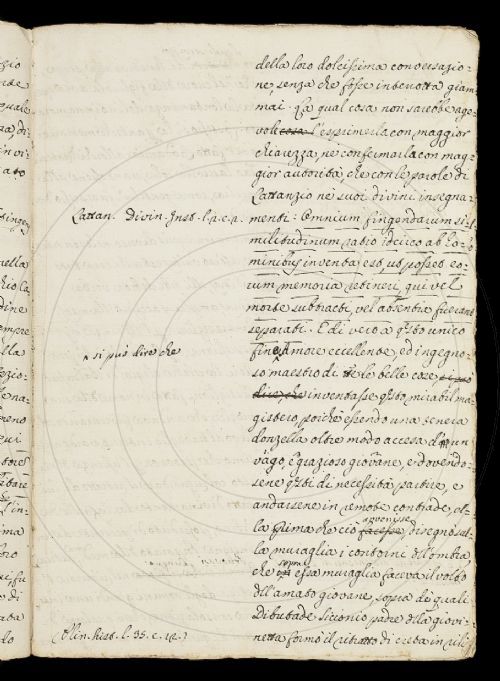 della loro dolcissima conversazio-
ne, senza che fosse interrotta giam-
mai. La qual cosa non sarebbe age-
vole cosa l'esprimerla con maggior
chiarezza, nè confermarla con mag-
gior autorità, che con le parole di
Lattanzio nè suoi divini insegna-
Lattan. Divin. Inst. l. 2. c. 2.
menti: Omnium fingendarum si-
militudinum ratio idcirco ab ho-
minibus inventa est, ut posset eo-
rum memoria retineri, qui vel
morte subtracti, vel absentia fuerant
separati. E di vero a qsto unico
fine Amore eccellente, ed ingegno-
^ si può dire che
so maestro di tte le belle cose si può
dire che inventasse qsto mirabil ma-
gistero, poiche essendo una tenera
donzella oltre modo accesa d'un
vago, e grazioso giovane, e dovendo-
sene qsti di necessità partire, e
andarsene in remote contrade, el-
la prima che ciò facesse disegnò sul-
avvenisse
la muraglia i contorni dll'ombra
che essa muraglia faceva il volto
sopra
dll'amato giovane, sopra dè quali
Dibutade Sicionio padre dlla giovi-
netta formò il ritratto di creta in rili-
Plin. hist. l. 35. c. 12.